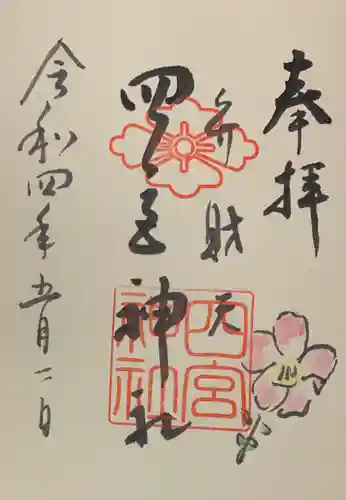 奉拝
弁財天
四之宮神社
四宮
神社
令和四年五月一日